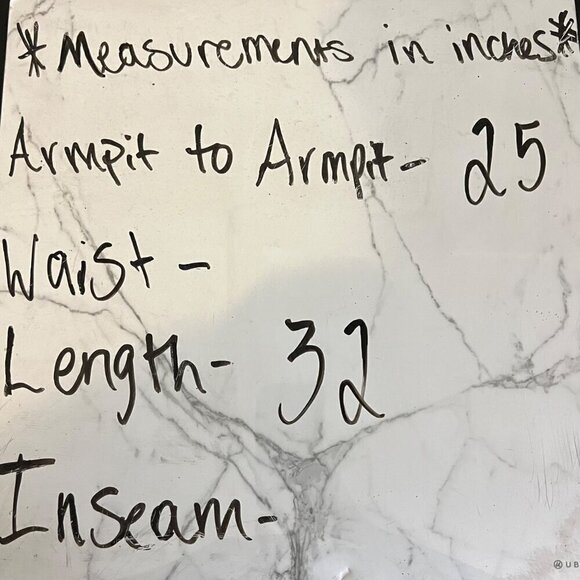 *Measurements in inches*
Armpit to Armpit- 25
Waist -
Length- 32
Inseam-
UB